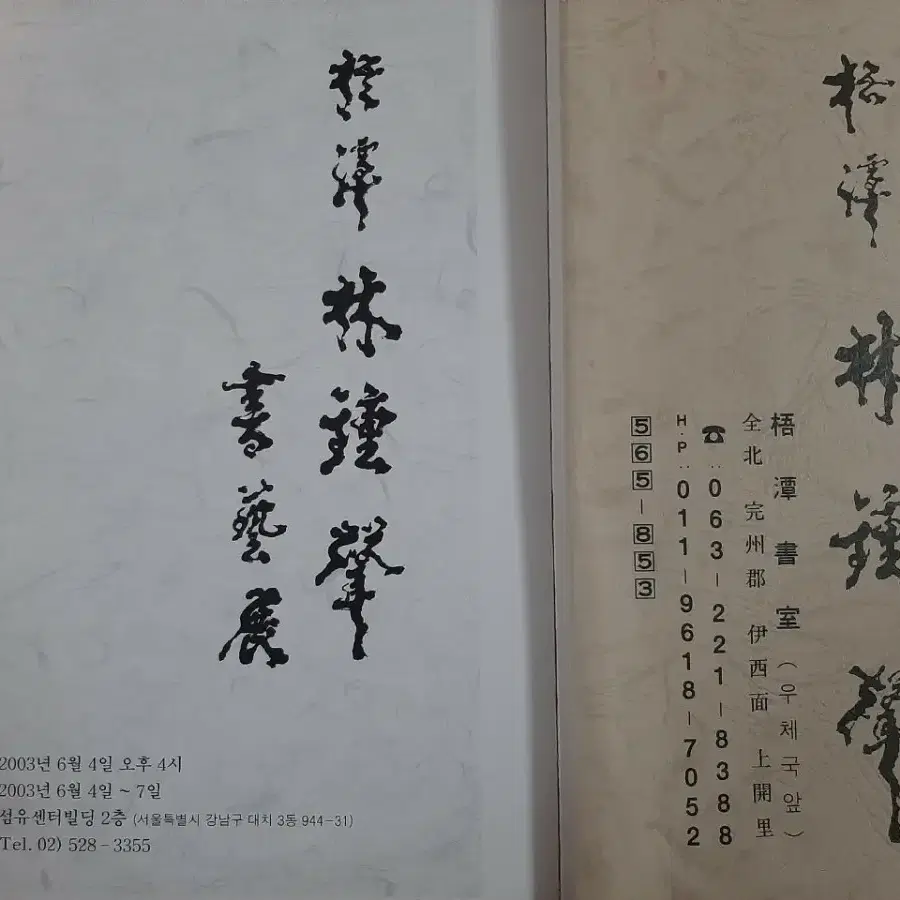 梧潭 林鍾聲
書藝展
2003년 6월 4일 오후 4시
2003년 6월 4일 ~ 7일
섬유센터빌딩 2층 (서울특별시 강남구 대치 3동 944-31)
Tel. 02) 528 - 3355
梧潭 林鍾聲
梧潭書室 (우체국앞)
全北 完州郡 伊西面 上開里
☎:063-221-8388
H.P:011-9618-7052
565-853